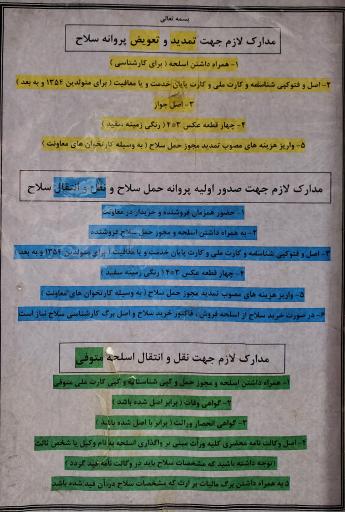 بسمه تعالی
مدارک لازم جهت تمدید و تعویض پروانه سلاح
۱- همراه داشتن اسلحه ( برای کارشناسی )
۲- اصل و فتوکپی شناسنامه و کارت ملی و کارت پایان خدمت و یا معافیت ( برای متولدین ۱۳۵۴ و به بعد )
۳- اصل جواز
۴- چهار قطعه عکس ۳*۴ ( رنگی زمینه سفید )
۵- واریز هزینه های مصوب تمدید مجوز حمل سلاح ( به وسیله کارتخوان های معاونت )
مدارک لازم جهت صدور اولیه پروانه حمل سلاح و نقل و انتقال سلاح
۱- حضور همزمان فروشنده و خریدار در معاونت
۲- به همراه داشتن اسلحه و مجوز حمل سلاح فروشنده
۳- اصل و فتوکپی شناسنامه و کارت ملی و کارت پایان خدمت و یا معافیت ( برای متولدین ۱۳۵۴ و به بعد )
۴- چهار قطعه عکس ۳*۴ ( رنگی زمینه سفید )
۵- واریز هزینه های مصوب تمدید مجوز حمل سلاح ( به وسیله کارتخوان های معاونت )
۶- در صورت خرید سلاح از اسلحه فروش ، فاکتور خرید سلاح و اصل برگ کارشناسی سلاح نیاز است
مدارک لازم جهت نقل و انتقال اسلحه متوفی
۱- همراه داشتن اسلحه و مجوز حمل و کپی شناسنامه و کپی کارت ملی متوفی
۲- گواهی وفات ( برابر اصل شده باشد )
۳- گواهی انحصار وراثت ( برابر با اصل شده باشد )
۴- اصل وکالت نامه محضری کلیه وراث مبنی بر واگذاری اسلحه به نام وکیل یا شخص ثالث
( توجه داشته باشید که مشخصات سلاح باید در وکالت نامه قید گردد )
۵ به همراه داشتن برگ مالیات بر ارث که مشخصات سلاح در آن قید شده باشد